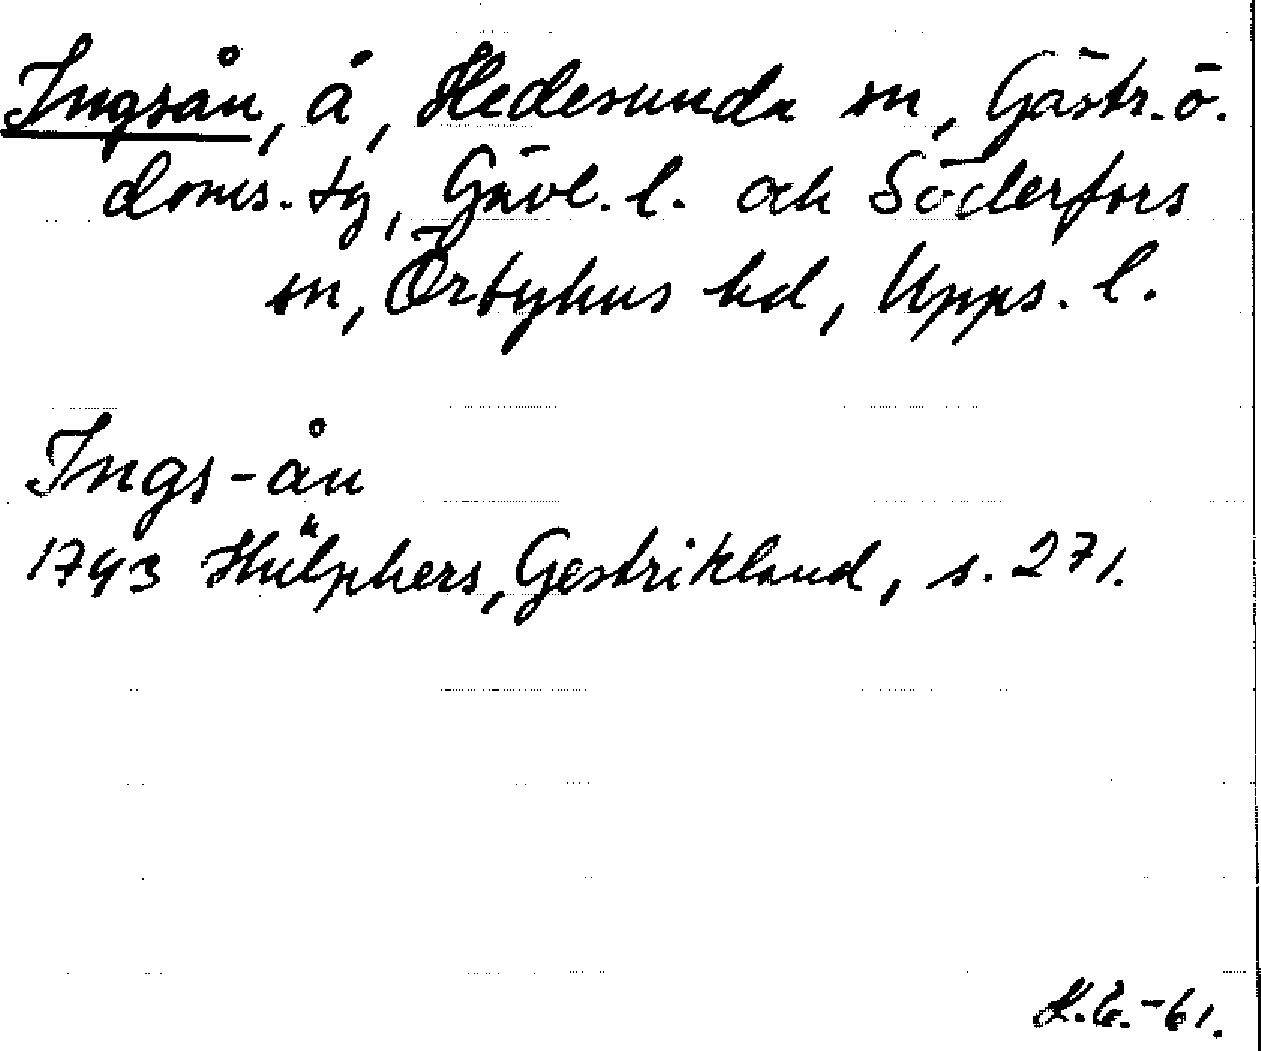 Ingsån, å, Hedesunda sn, Gästr. ö.
doms. tg, Gävl. l. och Söderfors
sn, Örbyhus hd, Upps. l.
Ings-ån
1793 Hülphers, Gestrikland, s. 271.
-61.